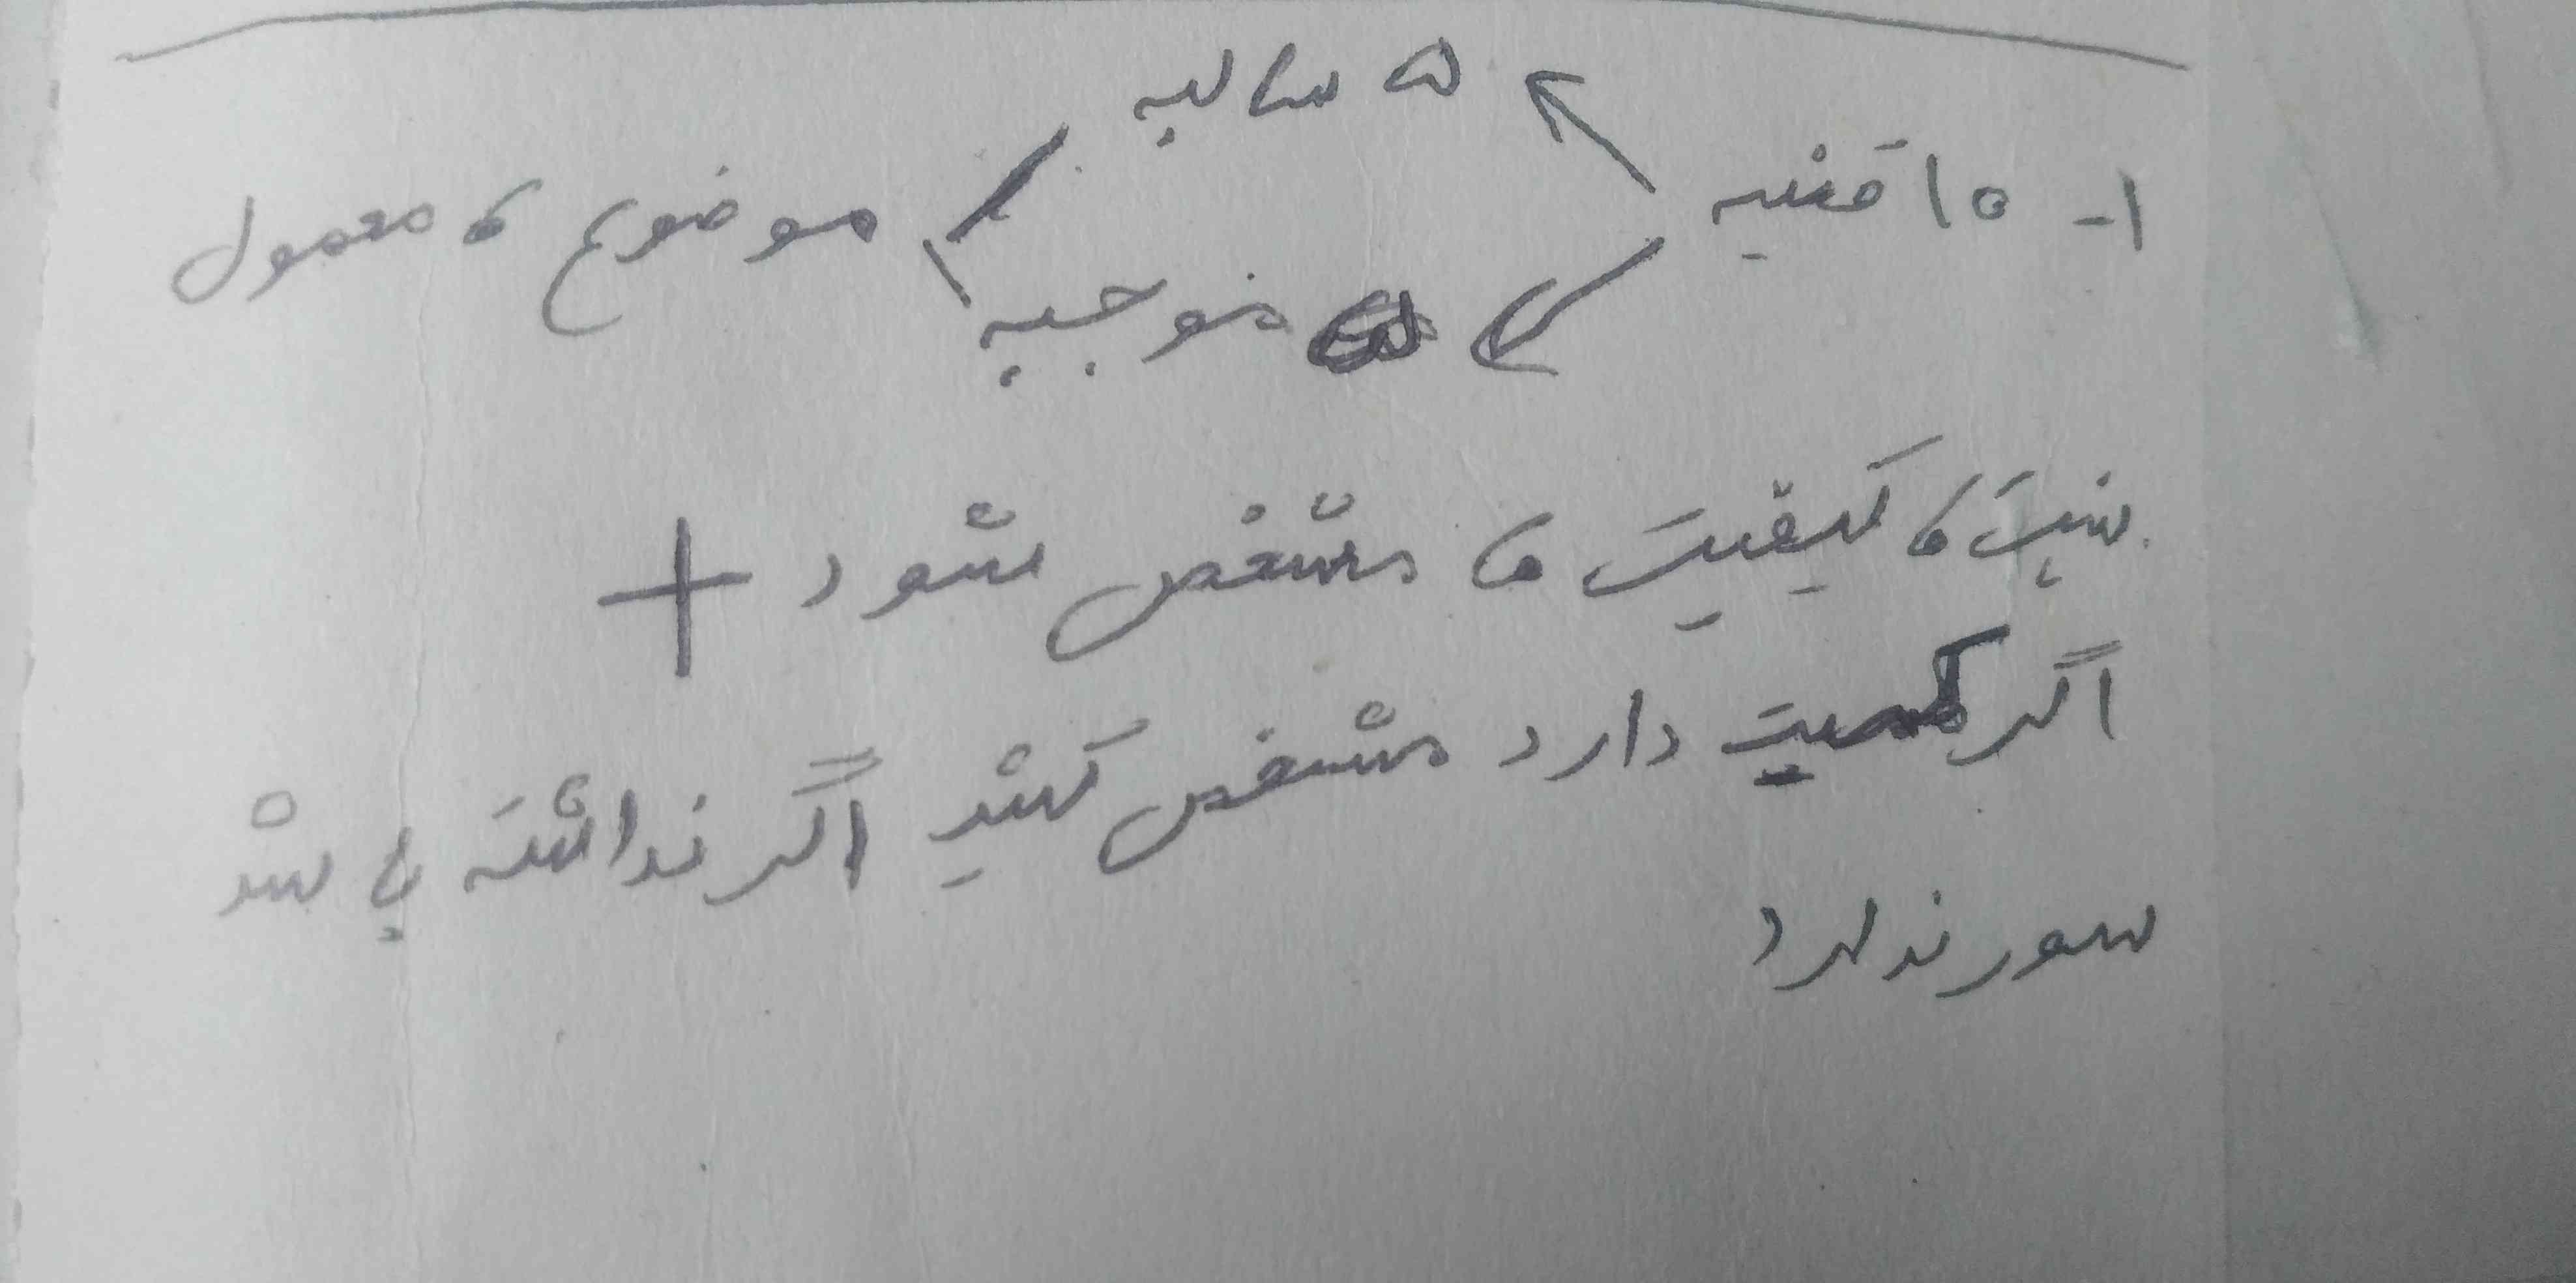 ۵ سالبه
۱- ۱۵ قضیه
موضوع، معمول
۵ موجبه
نسبت، کیفیت، مشخص شود +
اگر کمیت دارد مشخص کنید اگر نداشته باشد
سور ندارد